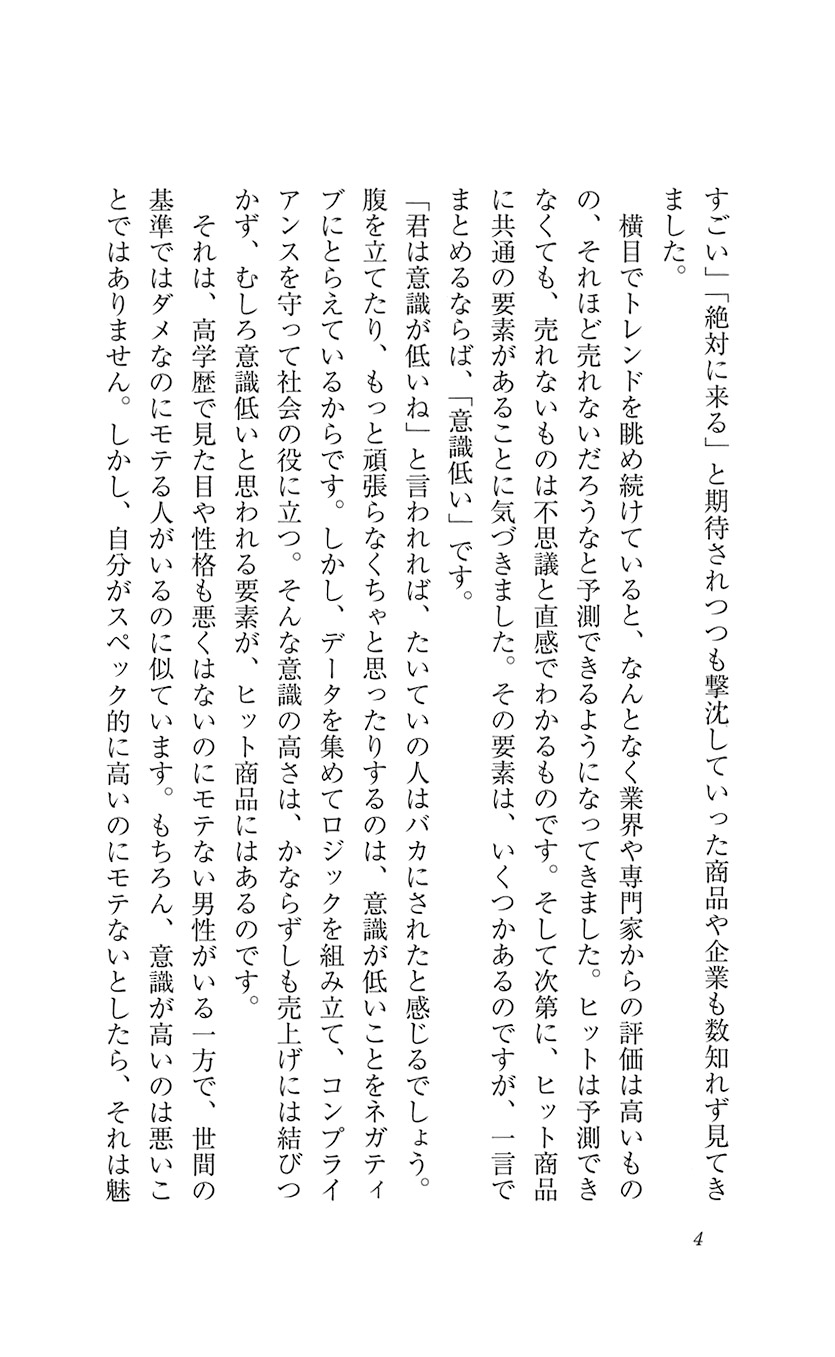 すごい」「絶対に来る」と期待されつつも撃沈していった商品や企業も数知れず見てき
ました。
横目でトレンドを眺め続けていると、なんとなく業界や専門家からの評価は高いもの
の、それほど売れないだろうなと予測できるようになってきました。ヒットは予測でき
なくても、売れないものは不思議と直感でわかるものです。そして次第に、ヒット商品
に共通の要素があることに気づきました。その要素は、いくつかあるのですが、一言で
まとめるならば、「意識低い」です。
「君は意識が低いね」と言われれば、たいていの人はバカにされたと感じるでしょう。
腹を立てたり、もっと頑張らなくちゃと思ったりするのは、意識が低いことをネガティ
ブにとらえているからです。しかし、データを集めてロジックを組み立て、コンプライ
アンスを守って社会の役に立つ。そんな意識の高さは、かならずしも売上げには結びつ
かず、むしろ意識低いと思われる要素が、ヒット商品にはあるのです。
それは、高学歴で見た目や性格も悪くはないのにモテない男性がいる一方で、世間の
基準ではダメなのにモテる人がいるのに似ています。もちろん、意識が高いのは悪いこ
とではありません。しかし、自分がスペック的に高いのにモテないとしたら、それは魅
4